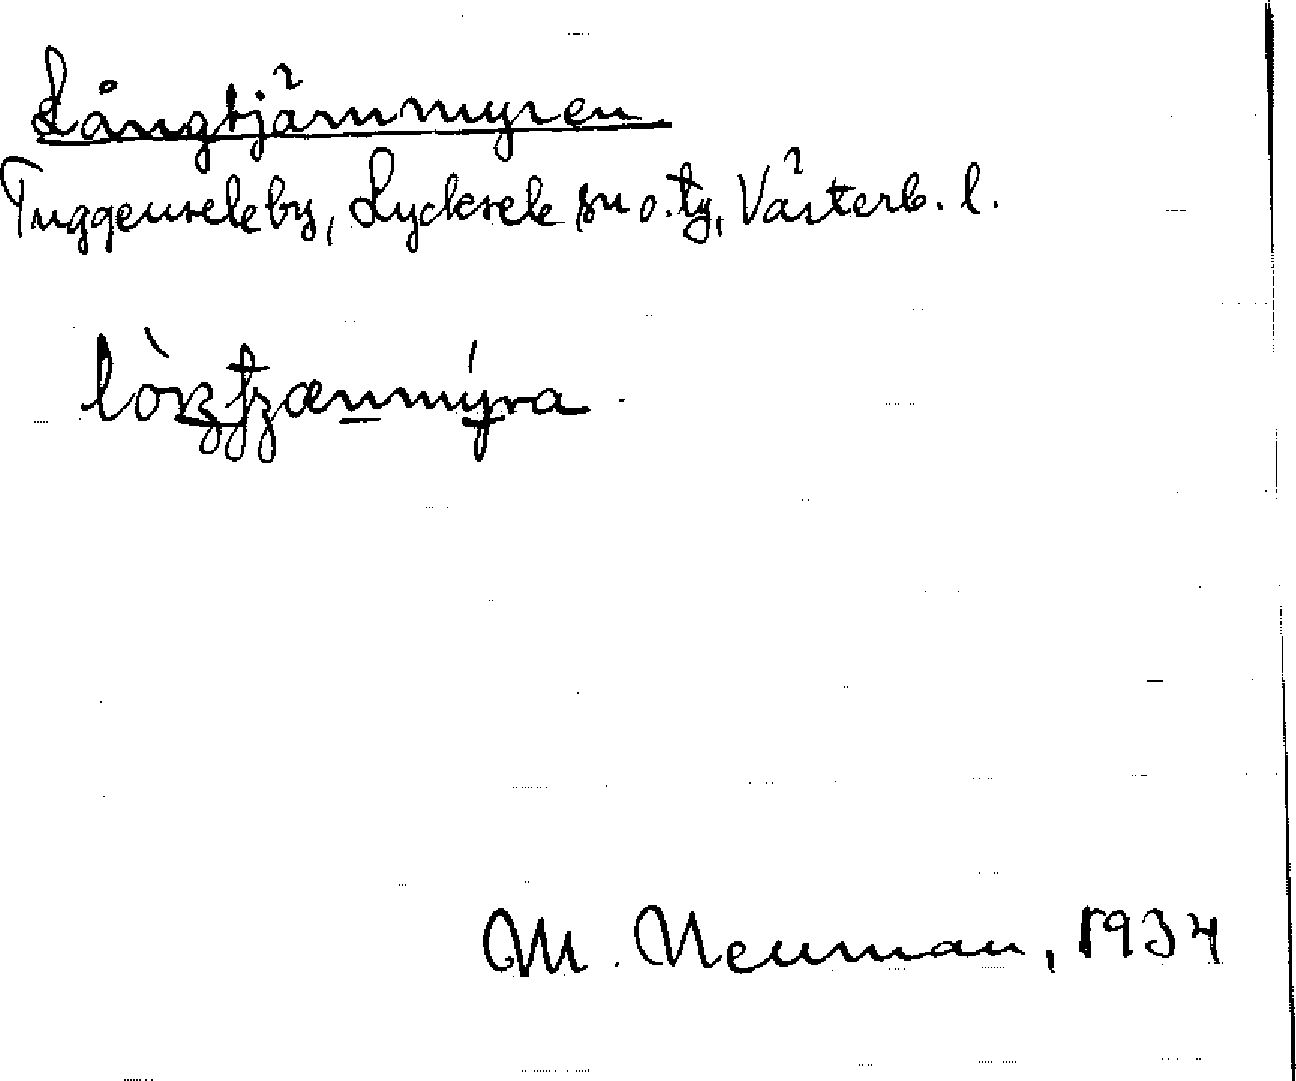 Långtjärnmyren
Tuggenseleby, Lycksele sn o. tg, Västerb. l.
M. Neuman, 1934